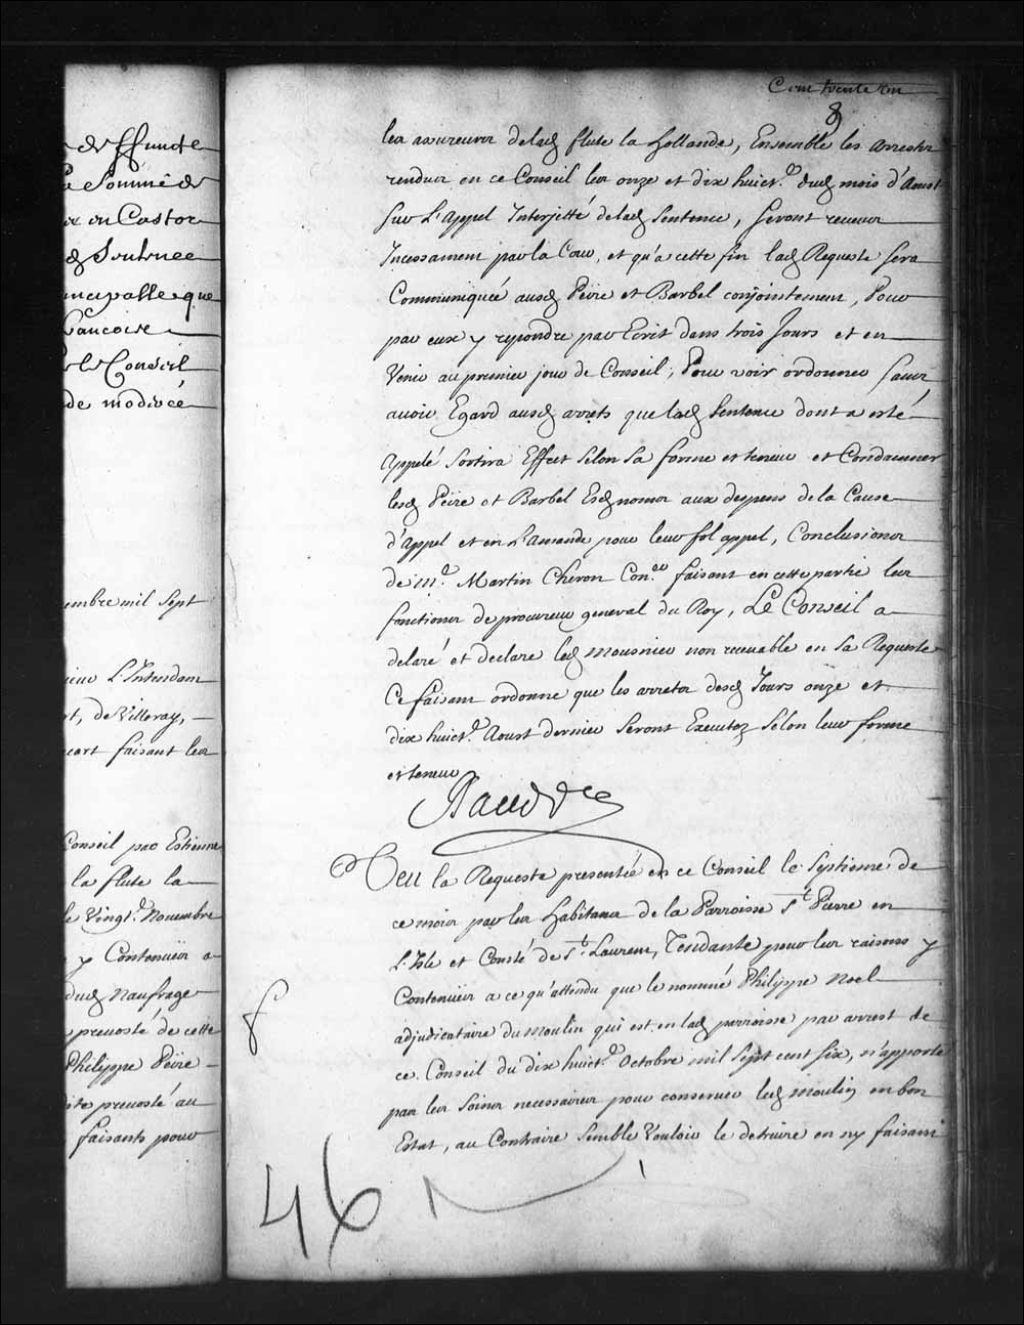 de Effunde
la Somme de
ix en Castor
dud Soulmee
incipalle que
francoise
le Conseil
de modicée
embre mil Sept
ieur L'Intendam
rt, de Villeray,
cort faisant les
Conseil par Estienne
la flute la
le vingt.e Novembre
y Contenües a
dud Naufrage
prevosté de cette
Philippe Peïre
ite prevosté au
faisants pour
Cent trente un
8
les assureurs delad flute la hollande, Ensemble les arrests
rendus en ce Conseil les onze et dix huict.e dud mois d'Aoust
sur L'Appel Interjetté de lad Sentence, Seront receus
Incessament par la Cour, et qu'a cette fin lad Requeste sera
Communiquée ausd Peïre et Barbel conjointement, Pour
par eux y repondre par Ecrit dans trois Jours et en
Venir au premier jour de Conseil; Pour voir ordonner sans
avoir Egard ausd arrets que lad Sentence dont a esté
Appelé Sortira Effect Selon Sa forme et teneur et Condamner
lesd Peïre et Barbel Esd noms aux despens de la Cause
d'appel et en L'amande pour leur fol appel, Conclusions
de m.e Martin Cheron Con.er faisant en cette partie les
fonctions de procureur general du Roy, Le Conseil a
delaré et declare led Mousnier non recevable en sa Requeste
Ce faisant ordonne que les arrests desd Jours onze et
dix huict.e Aoust dernier Seront Executez Selon leur forme
et teneur
Raudot
Veu la Requeste presentée en ce Conseil le Septieme de
ce mois par les habitans de la Parroisse S.t Pierre en
L'Isle et Comté de S.t Laurens, Tendante pour les raisons y
Contenües a ce qu'attendu que le nommé Philippe Noel
adjudicataire du moulin qui est en lad parroisse par arrest de
ce Conseil du dix huict.e Octobre mil Sept cent six, n'apporte
pas les Soins necessaires pour conserver led moulin en bon
Estat, au Contraire Semble Vouloir le detruire en ny faisant
46